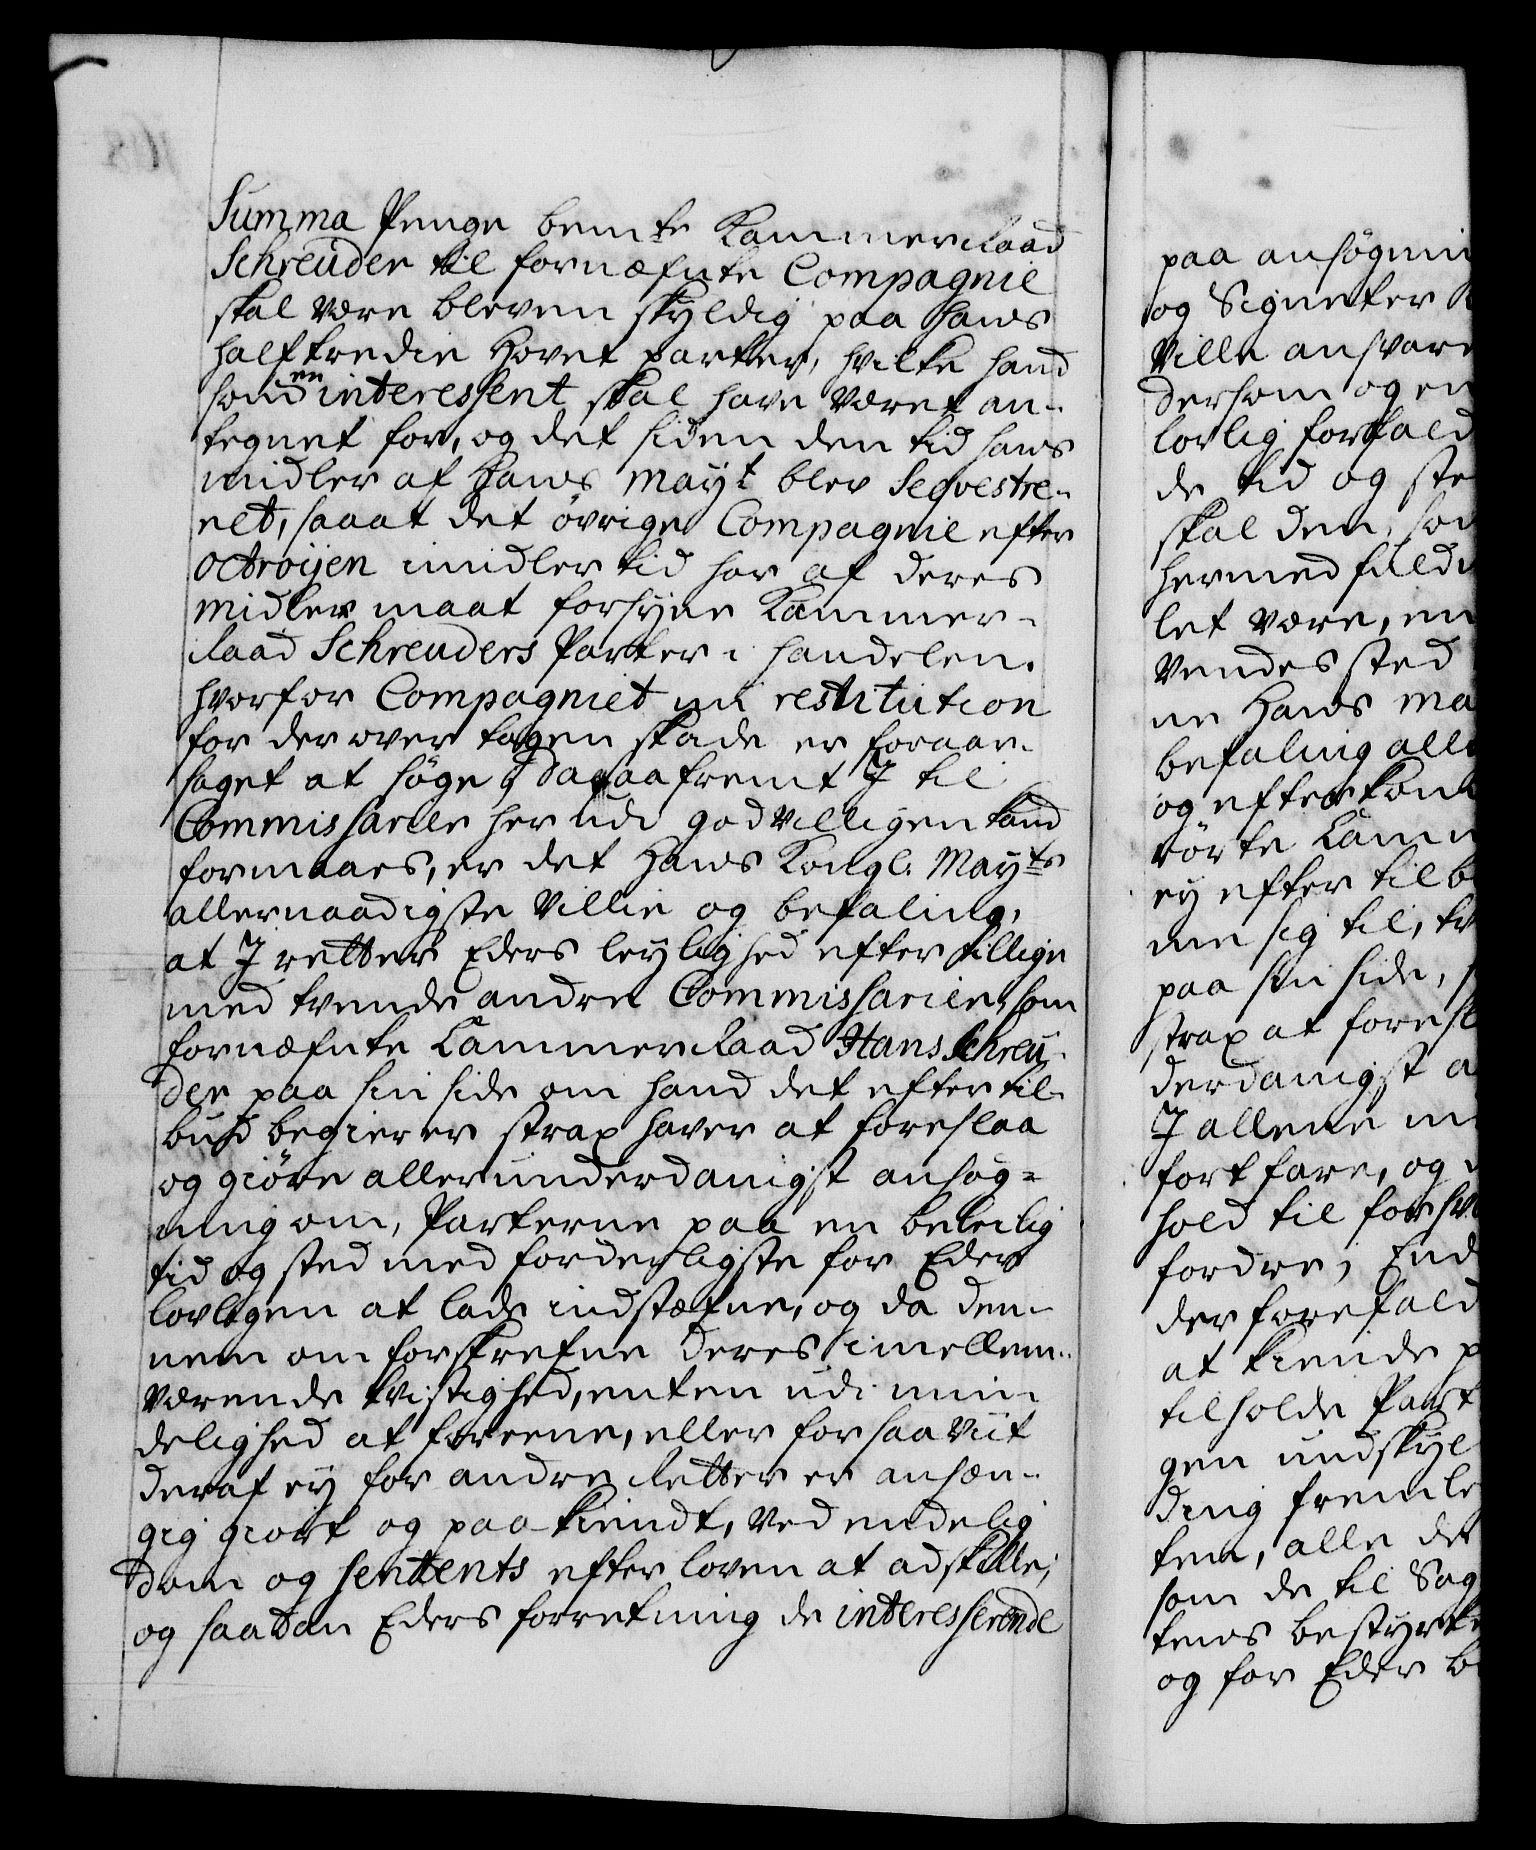 Summa Penge bemte Kammer Raad
Schreuder til fornæfnte Compagnie
skal være bleven skyldig paa hans
halftredie Hovet parter, hvilke hand
som en interessent skal have været an-
tegnet for, og det siden den tid hans
midler af Hans Mayt blev Seqvestre-
ret, saaat det övrige Compagnie efter
octroijen imidlertid har af deres
midler maat forsyne Kammer-
Raad Schreuders Parter i handelen.
hvorfor Compagniet nu restitution
for derover tagen skade er foraar-
saget at söge, dasaafremt I til
Commissarier herudi godvilligen kand
formaaes, er det Hans Kongl. Mayts
allernaadigste Villie og befaling,
at I retter Eders leylighed efter tillige
med tvende andre Commissarier, som
fornæfnte Cammer Raad Hans Schreu-
der paa sin side om hand det efter til-
bud begierer strax haver at foreslaa
og giöre allerunderdanigst ansög-
ning om, Parterne paa en beleilig
tid og sted med forderligste for Eder
lovligen at lade indstæfne, og da den-
nem om forskrefne deres imellem-
værende tvistighed, enten udi min-
delighed at foreene, eller forsaaviit
deraf ey for andre Retter er anhæn-
gig giort og paakiendt, ved endelig
dom og sentents efter loven at adskille,
og saadan Eders forretning de interesserende
paa ansögnin
og Signeter
Ville ansvare
dersom og en
lovlig forfald
de tid og ste
skal den, som
hermed fuld
let være, en
vendes sted
ne Hans Ma
befaling alle
og efterkom
rörte Camm
ey efter tilb
me sig til, tv
paa sin side,
strax at foresl
derdanigst a
I allene m
fortfare, og
hold til forsv
fordre, End
der forefald
at kiende p
tilholde Part
gen undskyl
ding fremle
tem, alle de
som de til Sag
tens bestyrke
og for Eder be